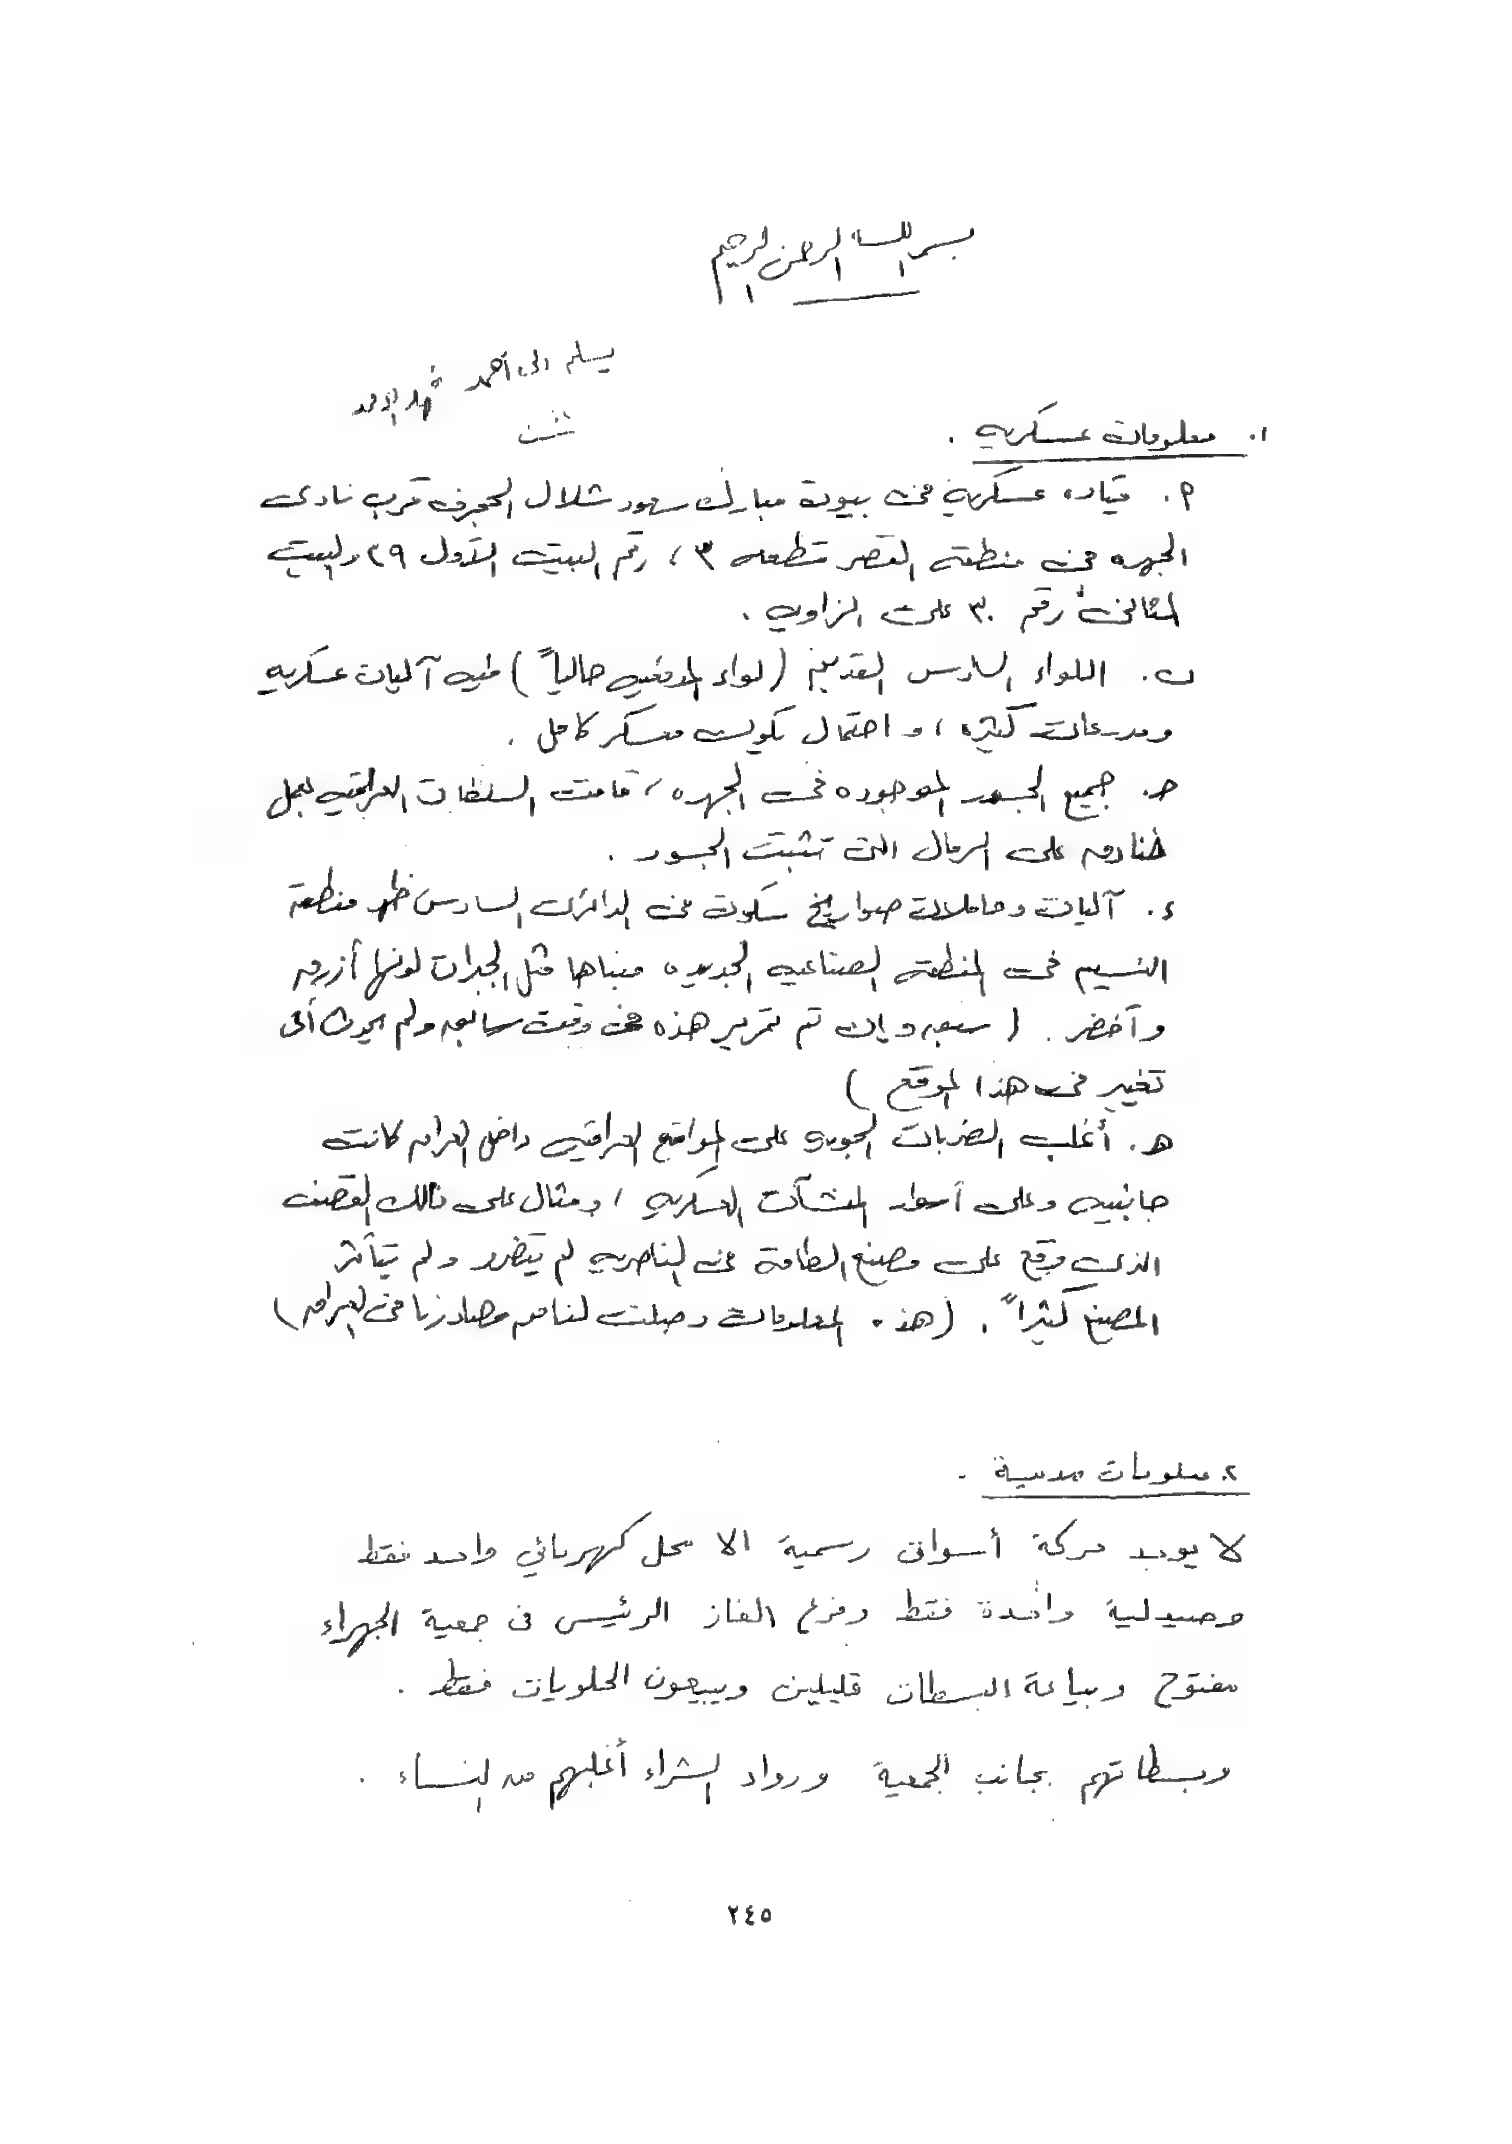 بسم الله الرحمن الرحيم
يسلم الى أحمد فهد الاحمد
١. معلومات عسكريه .
أ. قياده عسكريه في بيوت مبارك سعود شلال الحجرف قرب نادى
الجهره في منطقة القصر قطعه ٣ ، رقم البيت الأول ٢٩ والبيت
الثاني رقم ٣٠ على الزاويه .
ب. اللواء السادس القديم (لواء المدفعيه حالياً) فيه آليات عسكريه
ومدرعات كثيره ، واحتمال تكوين معسكر كامل .
جـ. جميع الجسور الموجوده في الجهره ، قامت السلطات العراقيه بعمل
خنادق على الرمال التي تثبت الجسور .
ء. آليات وحاملات صواريخ سكود في الدائرى السادس ظهر منطقة
النسيم في المنطقة الصناعيه الجديده مبناها مثل الجبرات لونها أزرق
وأخضر . ( سبق وإن تم تمرير هذه في وقت سابق ولم يحدث أى
تغيير في هذا الموقع )
هـ. أغلب الضربات الجويه على المواقع العراقيه داخل العراق كانت
جانبيه وعلى أسوار المنشآت العسكريه ، ومثال على ذالك القصف
الذى وقع على مصنع الطاقة في الناصريه لم يتضرر ولم يتأثر
المصنع كثيراً . (هذه المعلومات وصلت لنا من مصادرنا في العراق)
٢. معلومات مدنية .
لا يوجد حركة أسواق رسمية الا محل كهربائي واحد فقط
وصيدلية واحدة فقط وفرع الغاز الرئيسى في جمعية الجهراء
مفتوح وبياعة البسطات قليلين ويبيعون الحلويات فقط .
وبسطاتهم بجانب الجمعية ورواد الشراء أغلبهم من النساء .
٢٤٥